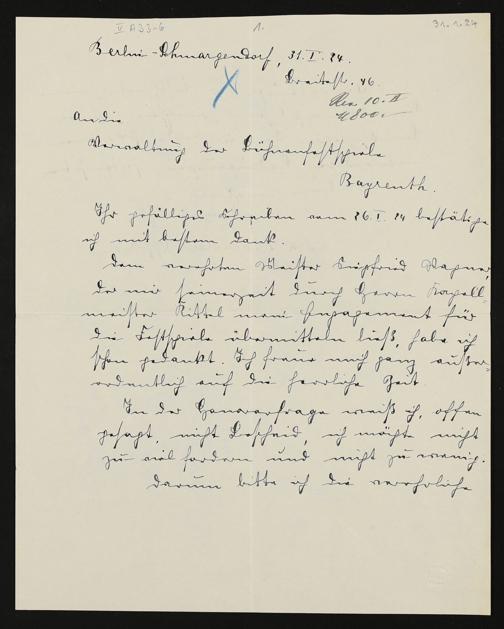 V A 33-6 1. 31.1.24
Berlin-Schmargendorf, 31.I.24.
Breitestr. 46.
10.II
800.-
An die
Verwaltung der Bühnenfestspiele
Bayreuth.
Ihr gefälliges Schreiben vom 26.I.24 bestätige
ich mit bestem Dank.
Dem verehrten Meister Siegfried Wagner,
der mir seinerzeit durch Herrn Kapell-
meister Kittel mein Engagement für
die Festspiele übermitteln ließ, habe ich
schon gedankt. Ich freue mich ganz außer-
ordentlich auf die herrliche Zeit.
In der Honorarfrage weiß ich, offen
gesagt, nicht Bescheid, ich möchte nicht
zu viel fordern und nicht zu wenig.
Darum bitte ich die verehrliche